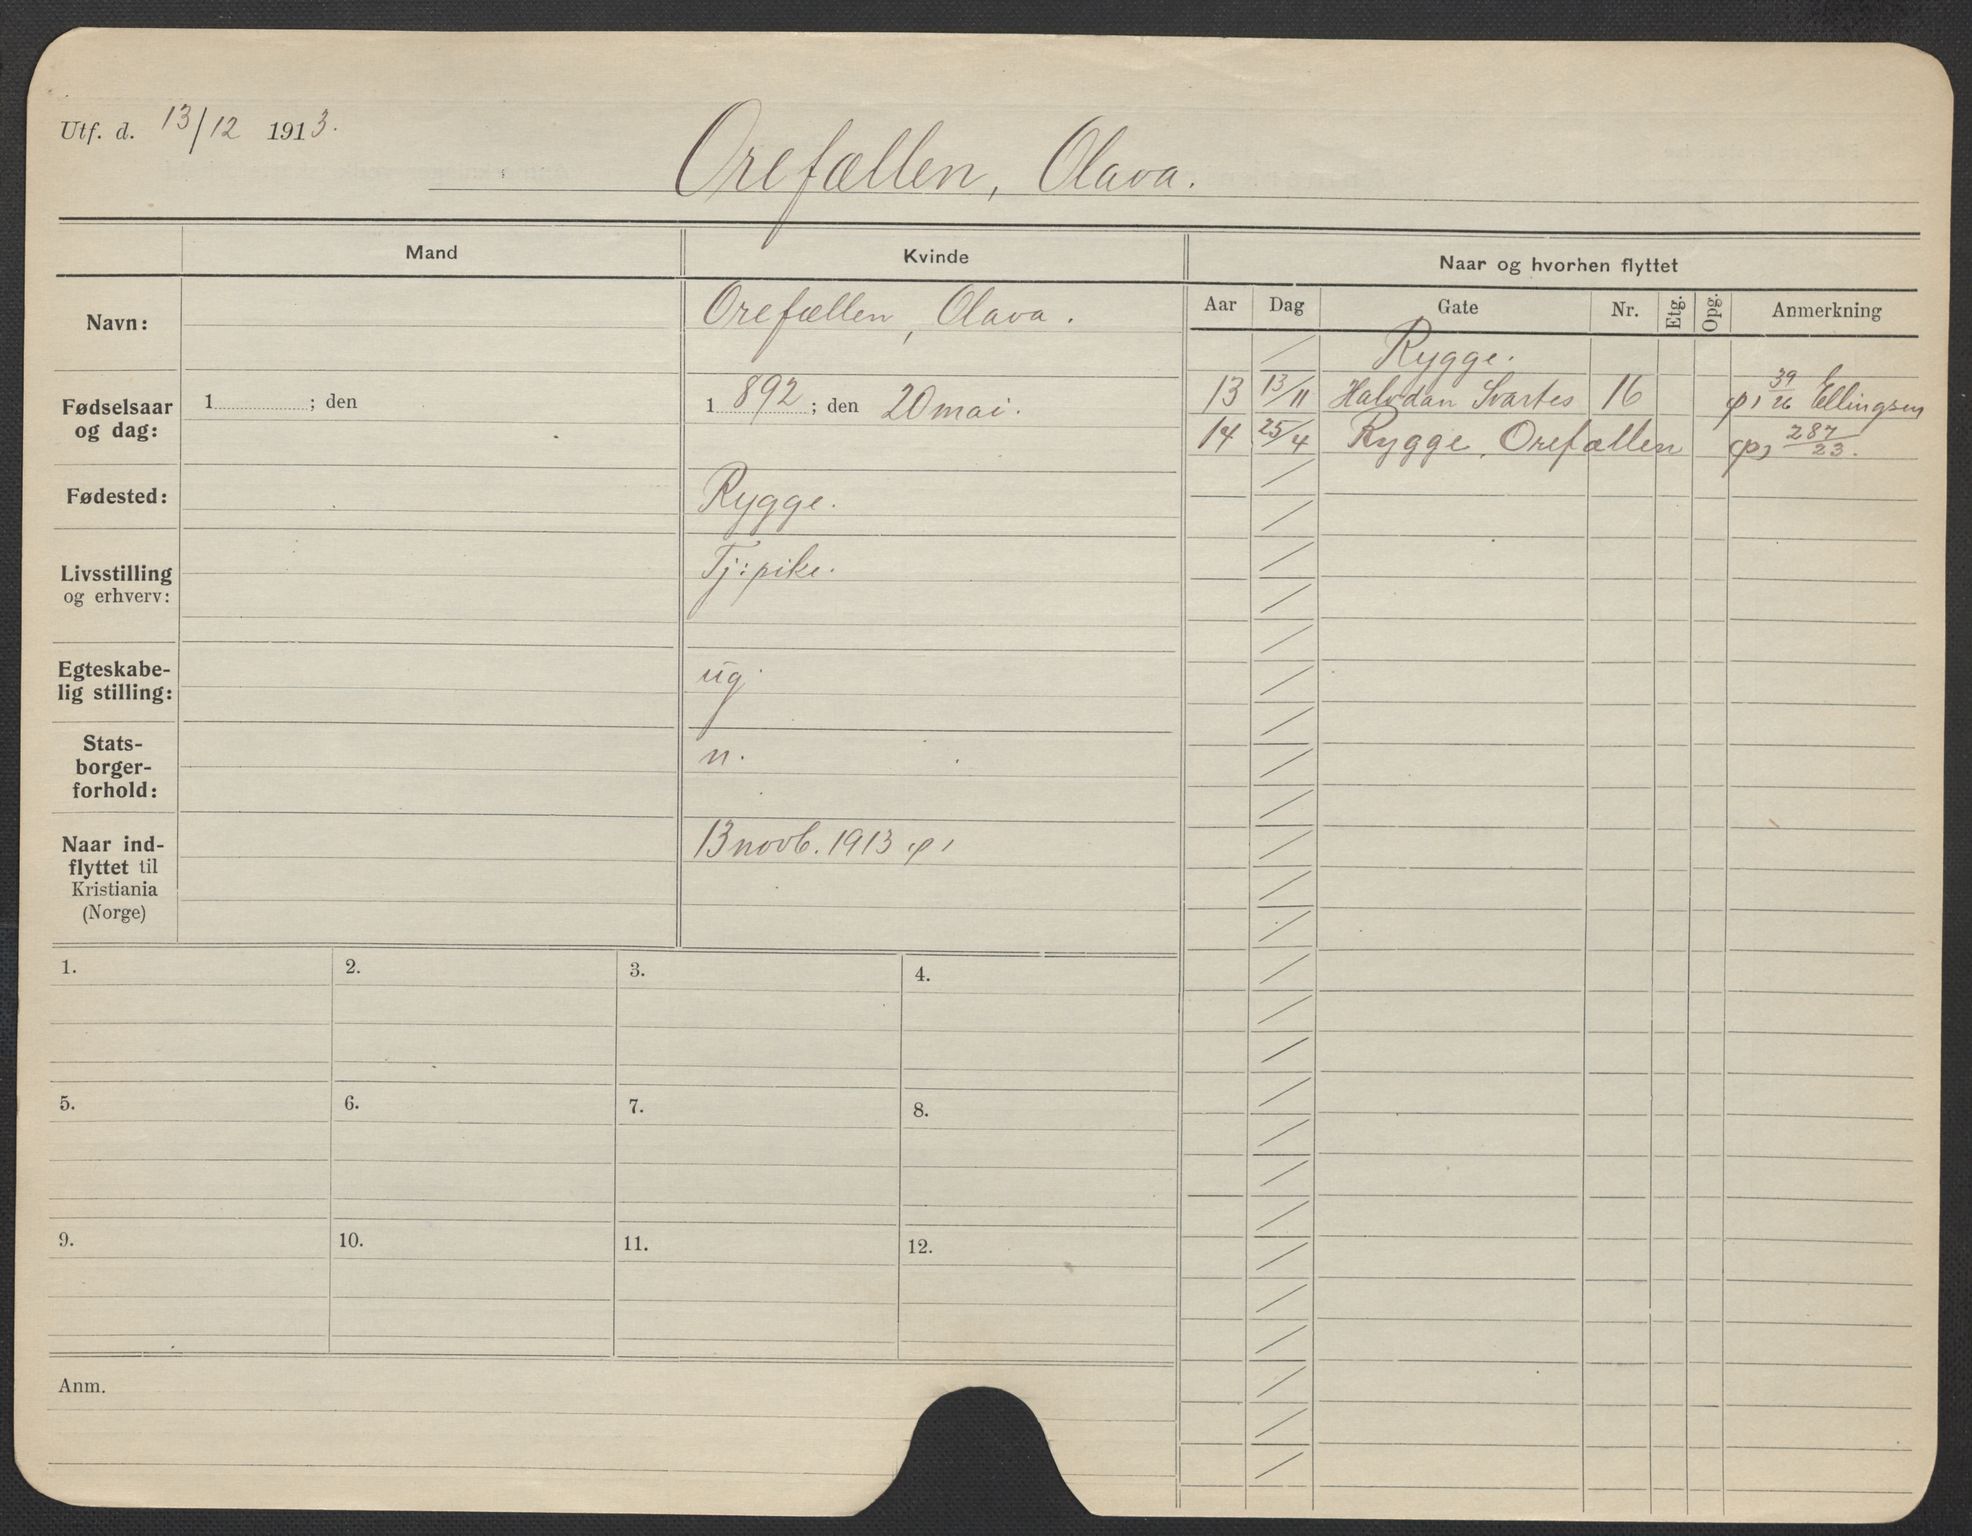 Utf. d. 13/12 1913.
Orefællen, Olava.
Mand
Kvinde
Naar og hvorhen flyttet
Navn:
Orefællen, Olava.
Aar Dag Gate Nr. Etg. Opg. Anmerkning
Rygge.
Fødselsaar
og dag:
1 ; den
1892; den 20 mai.
13 13/11 Halvdan Svartes 16 39/26 Ellingsen
14 25/4 Rygge, Orefællen 287/23.
Fødested:
Rygge.
Livsstilling
og erhverv:
Tj: pike.
Egteskabe-
lig stilling:
ug.
Stats-
borger-
forhold:
n.
Naar ind-
flyttet til
Kristiania
(Norge)
13 novb. 1913
1. 2. 3. 4.
5. 6. 7. 8.
9. 10. 11. 12.
Anm.